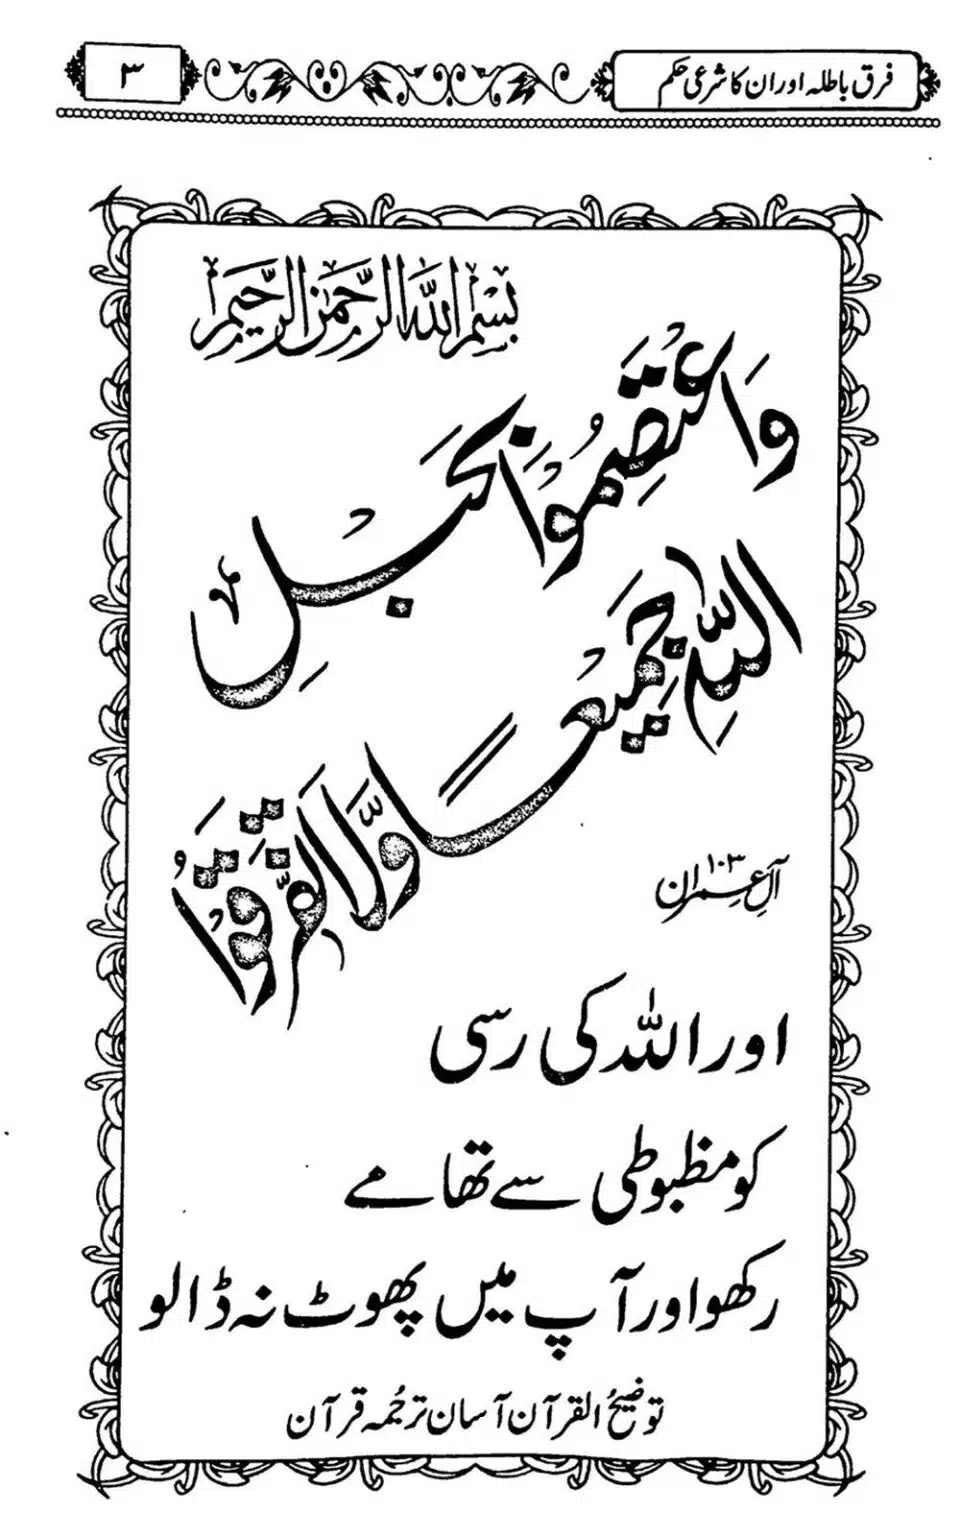 فرق باطلہ اور ان کا شرعی حکم
۳
بِسْمِ اللّٰهِ الرَّحْمٰنِ الرَّحِيْمِ
وَاعْتَصِمُوْا بِحَبْلِ
اللّٰهِ جَمِيْعًا
وَّلَا تَفَرَّقُوْا
آلِ عمران ۱۰۳
اور اللہ کی رسی
کو مظبوطی سے تھامے
رکھو اور آپ میں پھوٹ نہ ڈالو
توضیحُ القرآن آسان ترجُمہ قرآن